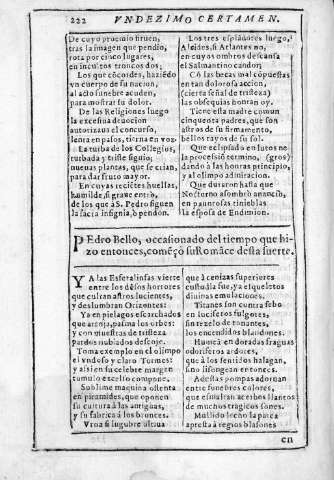 222 VNDEZIMO CERTAMEN.
De cuyo proemio siruen,
tras la imagen que pendio,
rota por cinco lugares,
en incultos troncos dos;
Los que cócordes, haziédo
vn cuerpo de su nacion,
al acto funebre acuden,
para mostrar su dolor.
De las Religiones luego
la excessiua deuocion
autorizaua el concurso,
lenta en passos, tierna en voz.
La turba de los Collegios,
turbada y triste siguio,
nueuas plantas, que se crian,
para dar fruto mayor.
En cuyas recietes huellas,
humilde, si graue entró,
de los que à S. Pedro siguen
la sacra insignia, ò pendon.
Los tres esplendores luego,
Alcides, si Atlantes no,
en cuyos ombros descansa
el Salmantino candor;
Có las becas mal cópuestas
en tan dolorosa accion,
(cierta señal de tristeza)
las obsequias honran oy.
Tiene esta madre comun
cinquenta padres, que son
astros de su firmamento,
bellos rayos de su sol.
Que eclipsado en lutos ne
la procession terminò, (gros)
dando à las honras principio,
y al olimpo admiracion.
Que duraron hasta que
Nocturno asombrò
en pauorosas tinieblas
la esposa de Endimion.
PEdro Bello, occasionado del tiempo que hi-
zo entonces, començò su Romāce desta suerte.
YA las Esferas insas vierte
entre los désos horrores
que cultran astros lucientes,
y deslumbran Orizontes:
Ya en pielagos escarchados
que arroja, pasma los orbes:
y con muestras de tristeza
pardos nublados descoje.
Toma exemplo en el olimpo
el vndoso y claro Tormes:
y assi en su celebre margen
tumulo excelso compone.
Sublime maquina ostenta
en piramides, que oponen
su cultura à las antiguas,
y su fabrica à los bronces.
Vrna si lugubre altiua
que à cenizas superiores
custodia fue, ya e
diuinas emulaciones.
Titanes son contra Febo
en luciferos fulgores,
sin rezelo de tonantes,
los encendidos blandones.
Huuo en doradas fraguas
odoriferos ardores,
que à los sentidos halagan,
sino lisongean entonces.
Adestas pompas adornan
entre funebres colores,
que esmaltan acerbos llantos
de muchos tragicos sones.
Mullido lecho la parca
apresta à regios blasones
en